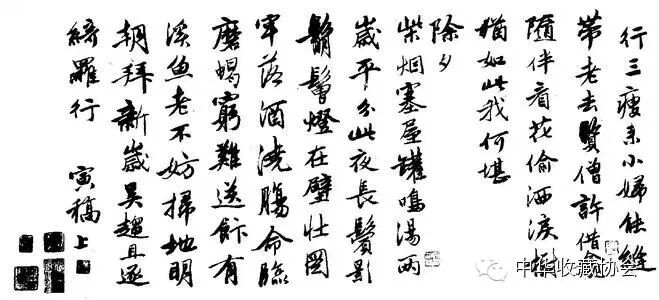 行三瘦来小婦能縫
帶老去賢僧許借龕
隨伴看花偷洒淚樹
猶如此我何堪
除夕
柴烟塞屋罐鳴湯兩
歲平分此夜長鬢影
鬅鬙燈在壁壯圖
牢落酒澆腸命臨
磨蝎窮難送飰有
溪魚老不妨掃地明
朝拜新歲吳趨且逐
綺羅行 寅稿上
中华收藏协会